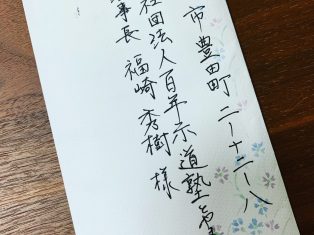 市豊田町二ー十二ー八
社団法人百年示道塾
事長 福崎秀樹様